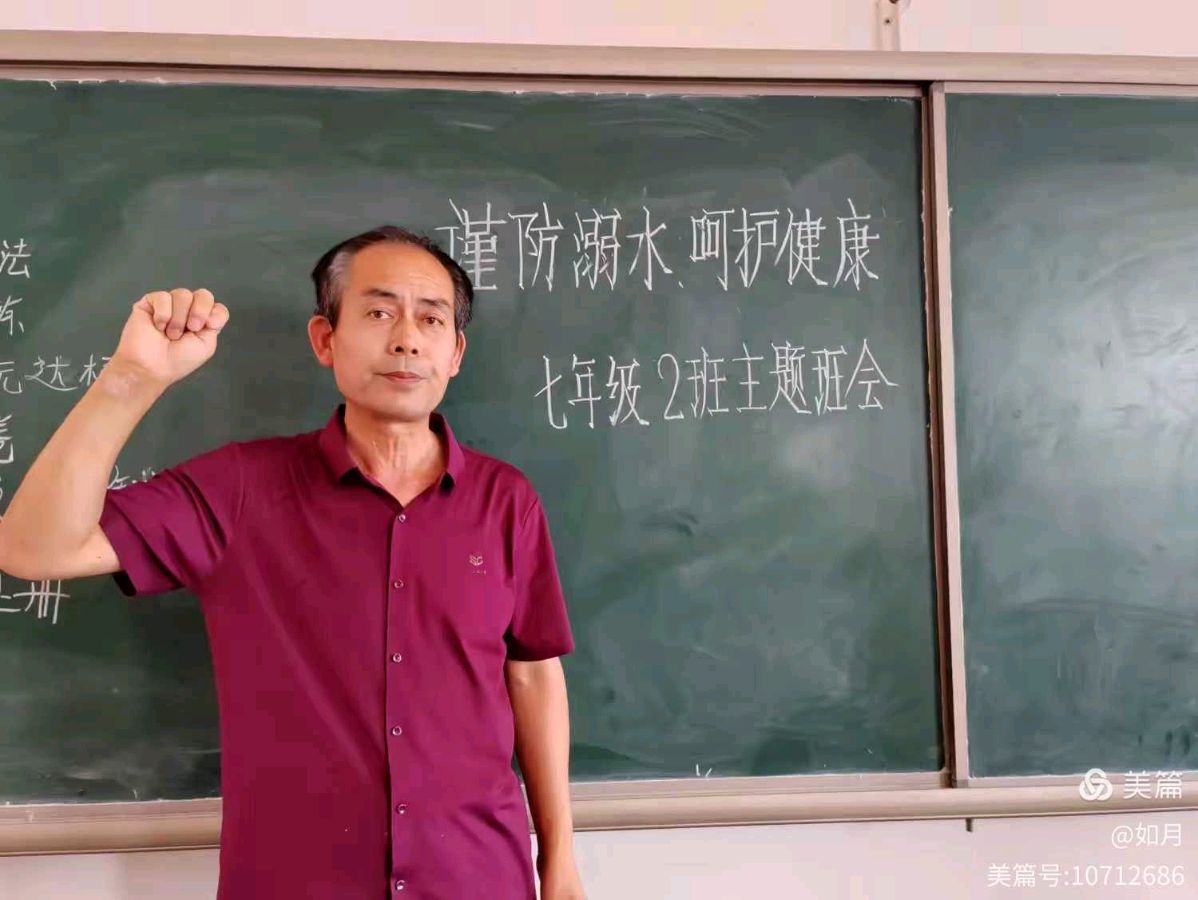 谨防溺水、呵护健康
七年级2班主题班会
法
元达标
上册
美篇
@如月
美篇号:10712686